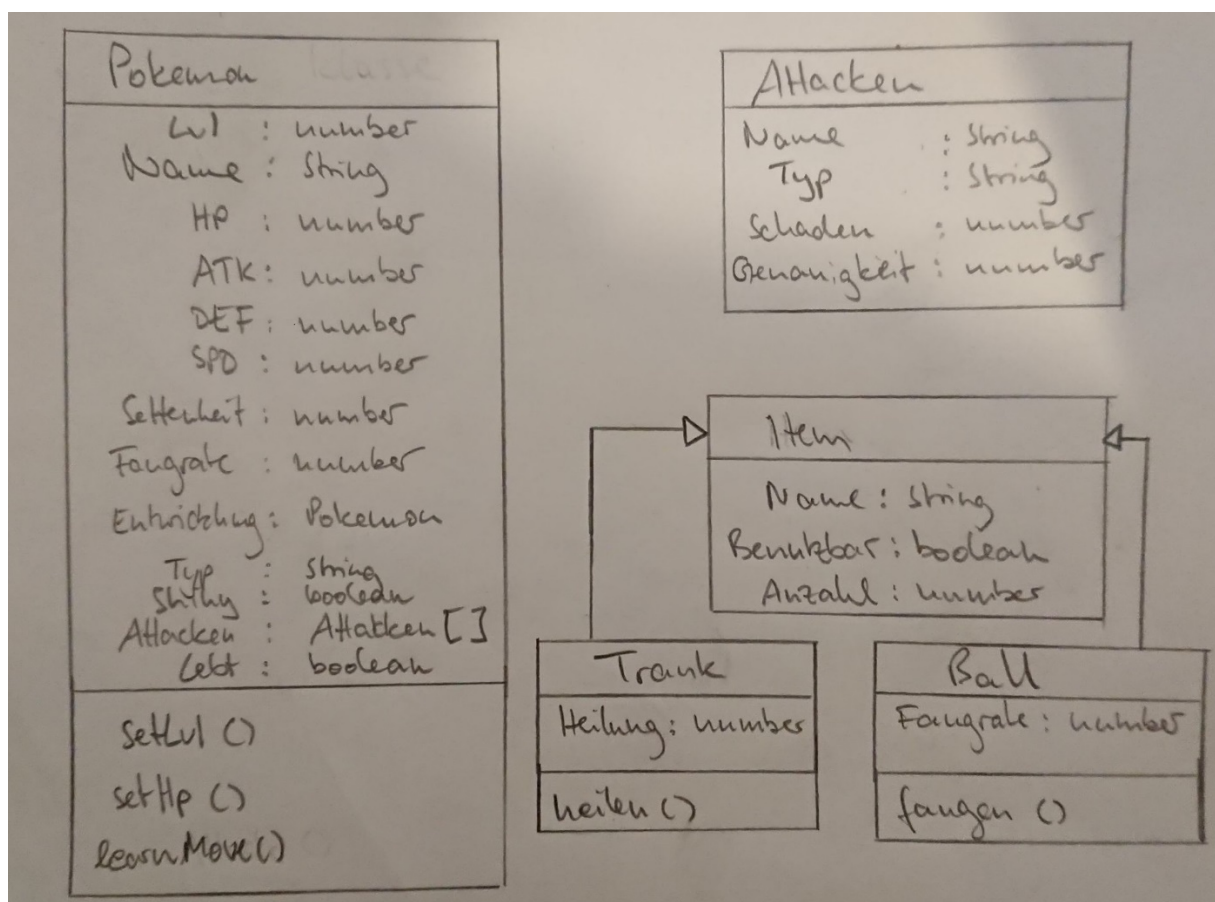 Pokemon Klasse
Lvl : number
Name : String
HP : number
ATK : number
DEF : number
SPD : number
Seltenheit : number
Fangrate : number
Entwicklung : Pokemon
Typ : String
Shiny : boolean
Attacken : Attacken []
Lebt : boolean
setLvl ()
setHp ()
learnMove ()
Attacken
Name : String
Typ : String
Schaden : number
Genauigkeit : number
Item
Name : String
Benutzbar : boolean
Anzahl : number
Trank
Heilung : number
heilen ()
Ball
Fangrate : number
fangen ()